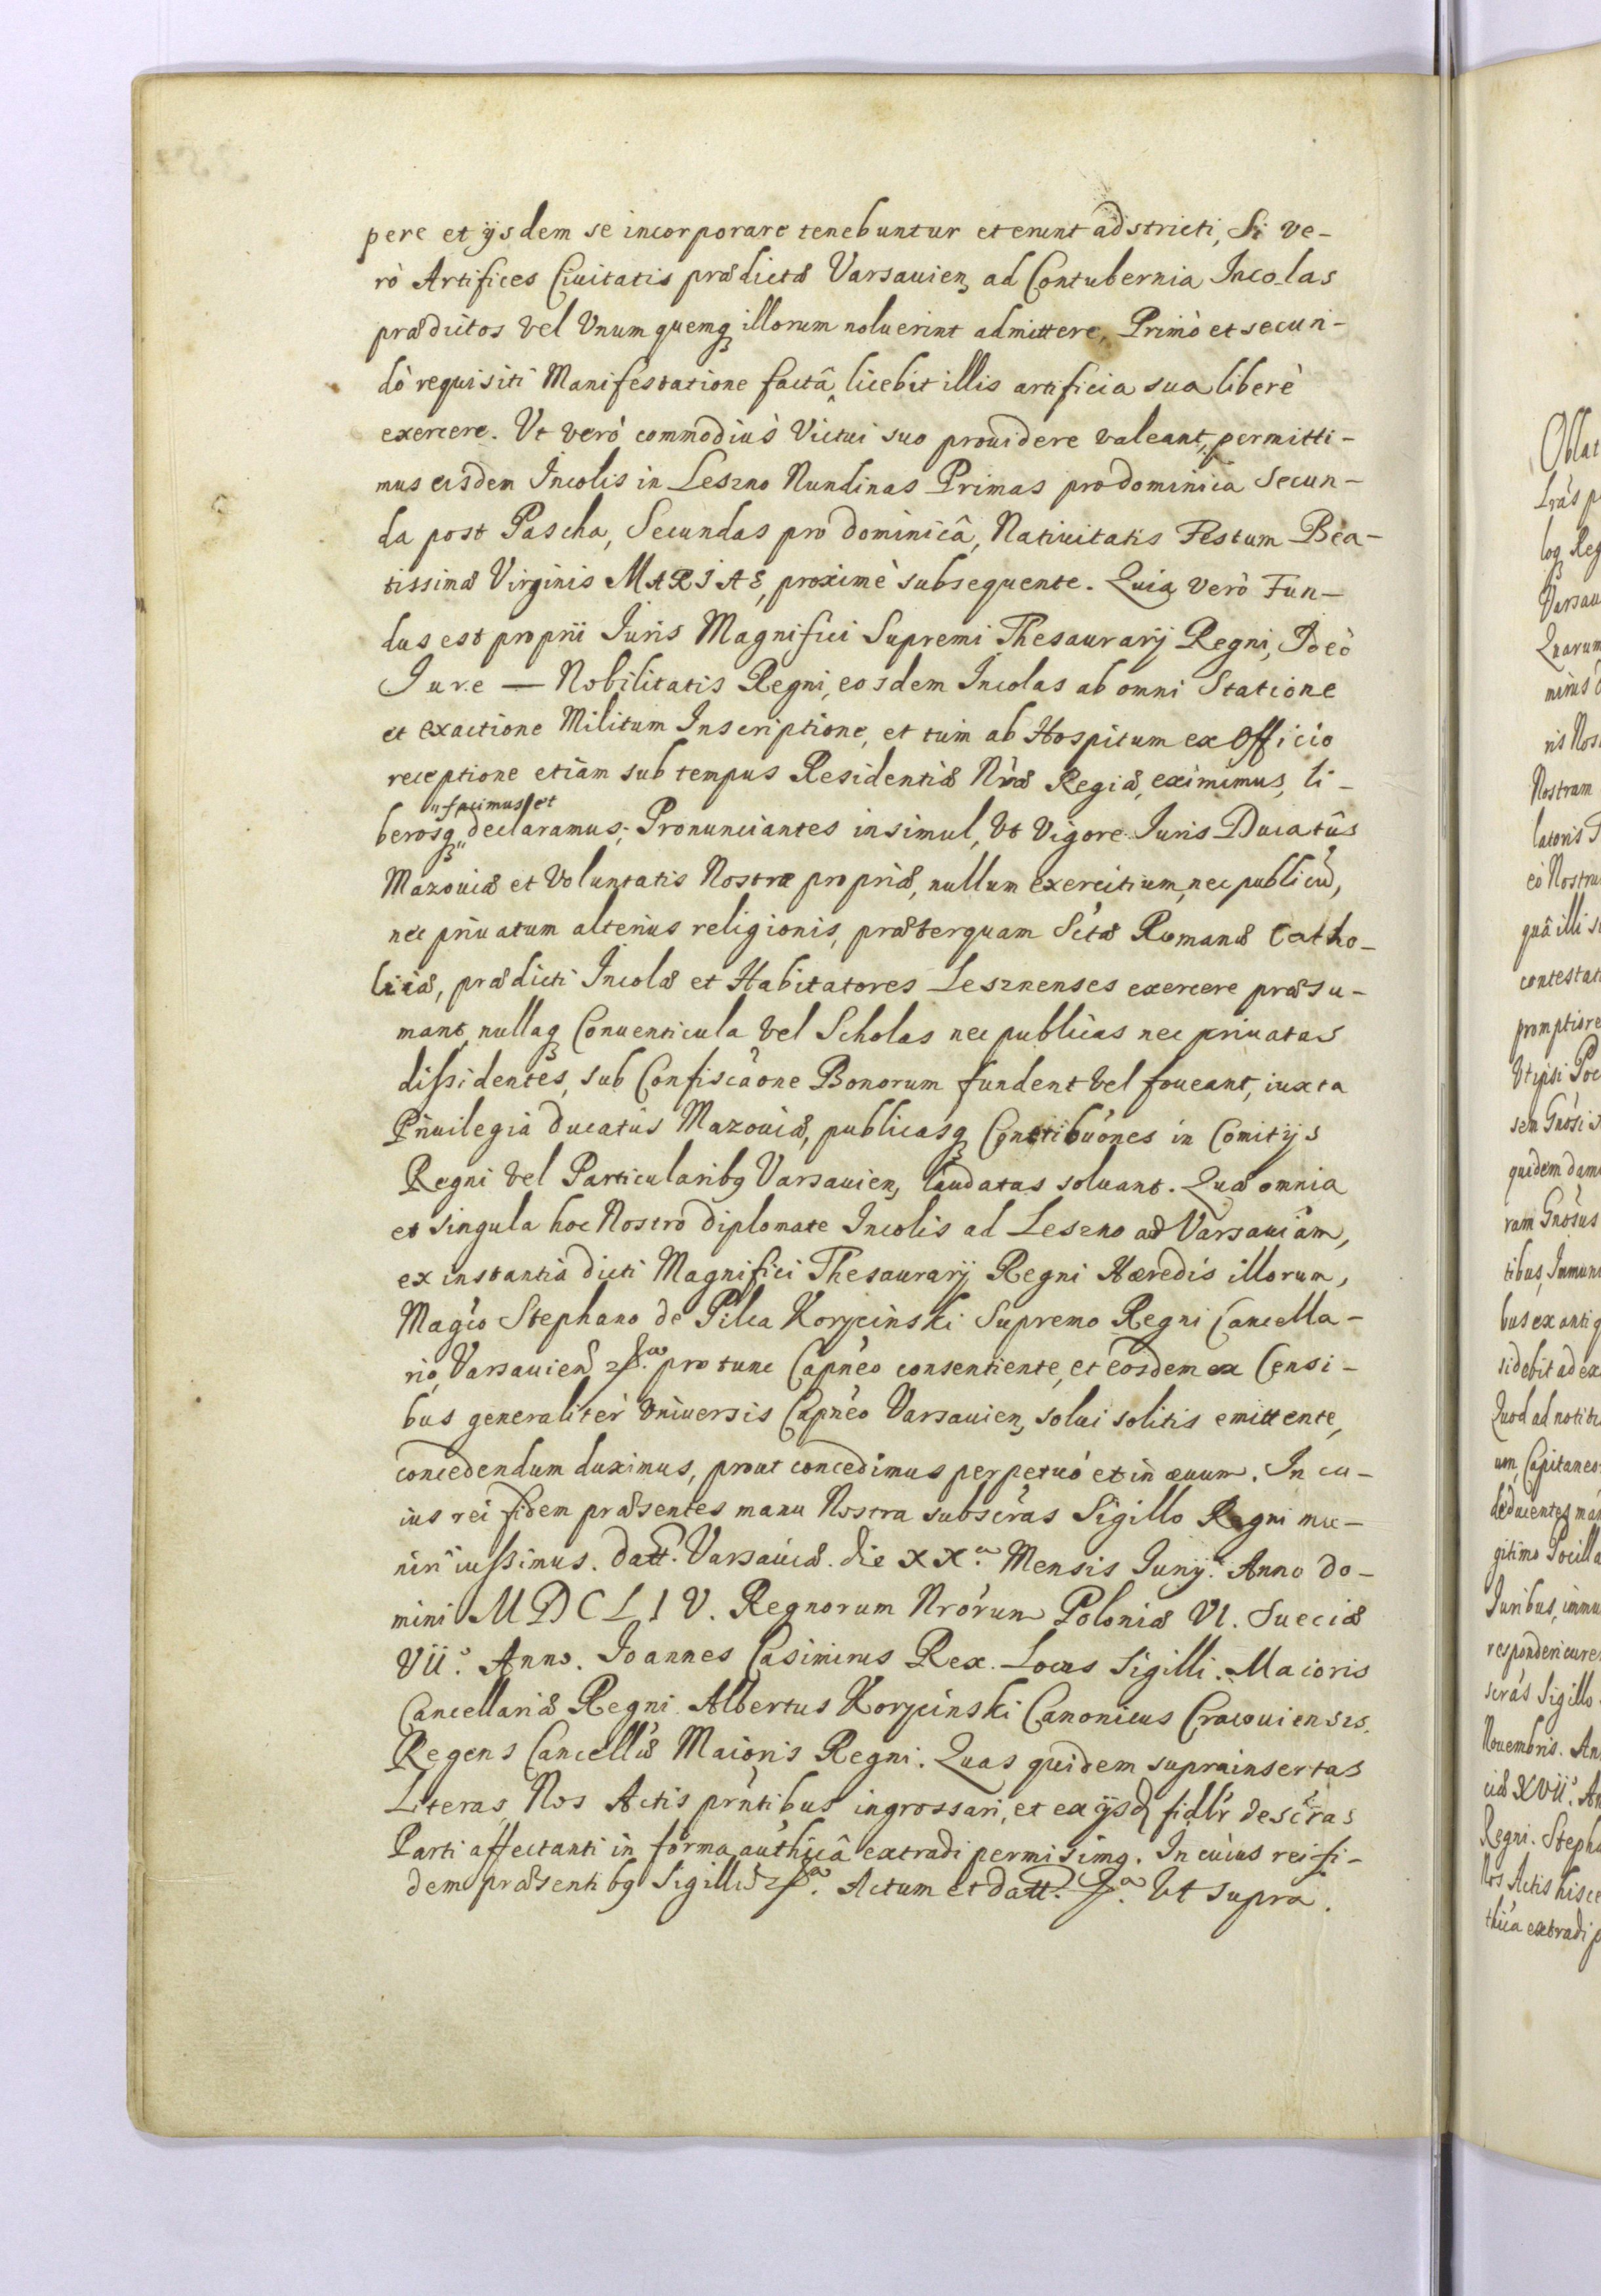 pere et ijsdem se incorporare tenebuntur et erunt adstricti, Si ve-
rò Artifices Ciuitatis prædictæ Varsauien, ad Contubernia Incolas
prædictos vel Vnumquemq illorum noluerint admittere, Primò et secun-
dò requisiti Manifestatione factâ, licebit illis artificia sua liberè
exercere. Vt verò commodiùs Victui suo prouidere valeant, permitti-
mus eisdem Incolis in Leszno Nundinas Primas pro dominica Secun-
da post Pascha, Secundas pro dominicâ, Natiuitatis Festum Bea-
tissimæ Virginis MARIAE, proximè subsequente. Quia verò Fun-
dus est proprii Iuris Magnifici Supremi Thesaurarij Regni, Ideò
Iure — Nobilitatis Regni, eosdem Incolas ab omni Statione
et exactione Militum Inscriptione, et tum ab Hospitum ex Officio
receptione etiam sub tempus Residentiæ Nræ Regiæ, eximimus, li-
facimus et
berosq declaramus; Pronunciantes insimul, Vt Vigore Iuris Ducatûs
Mazouiæ et Voluntatis Nostræ propriæ, nullum exercitium, nec publicũ,
nec priuatum alterius religionis, præterquam Sctæ Romanæ Catho-
licæ, prædicti Incolæ et Habitatores Lesznenses exercere præsu-
mant, nullaq Conuenticula vel Scholas nec publicas nec priuatas
dissidentes, sub Confiscãone Bonorum fundent vel foueant, iuxta
Priuilegia ducatus Mazouiæ, publicasq Contribuones in Comitijs
Regni vel Particularibq Varsauien, laudatas soluant. Quæ omnia
et singula hoc Nostro diplomate Incolis ad Leszno ad Varsauiam,
ex instantia dicti Magnifici Thesaurarij Regni Hæredis illorum,
Magco Stephano de Pilca Korycinski Supremo Regni Cancella-
rio, Varsauien pro tunc Capneo consentiente, et eosdem ex Censi-
bus generaliter Vniuersis Capneo Varsauien, solui solitis emittente,
concedendum duximus, prout concedimus perpetuò et in æuum. In cu-
ius rei fidem præsentes manu Nostra subscras Sigillo Regni mu-
niri iussimus. Datt. Varsauiæ. die XX.a Mensis Iunij. Anno Do-
mini MDCLIV. Regnorum Nrorum Poloniæ VI. Sueciæ
VII.o Anno. Ioannes Casimirus Rex. Locus Sigilli. Maioris
Cancellariæ Regni. Albertus Korycinski Canonicus Cracouiensis.
Regens Cancellriæ Maioris Regni. Quas quidem suprainsertas
Literas, Nos Actis prntibus ingrossari, et ex ijsd fidlr descras
Parti affectanti in forma authicâ extradi permisimq. In cuius rei fi-
dem præsentibq Sigill Actum et datt. Vt supra.